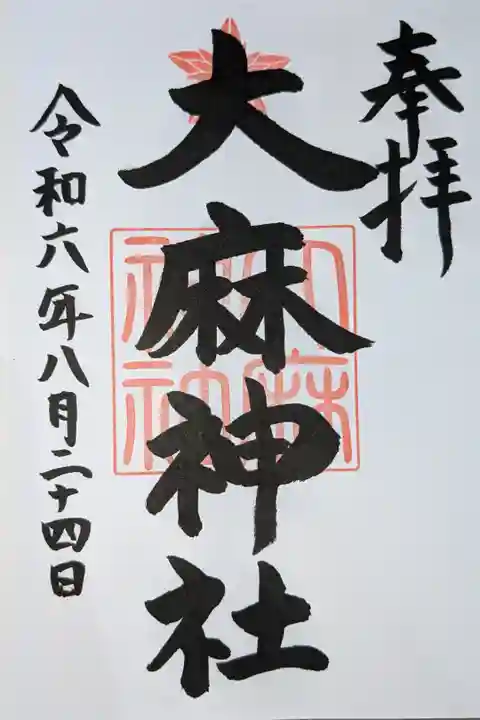 奉拝
大麻神社
令和六年八月二十四日
大麻神社